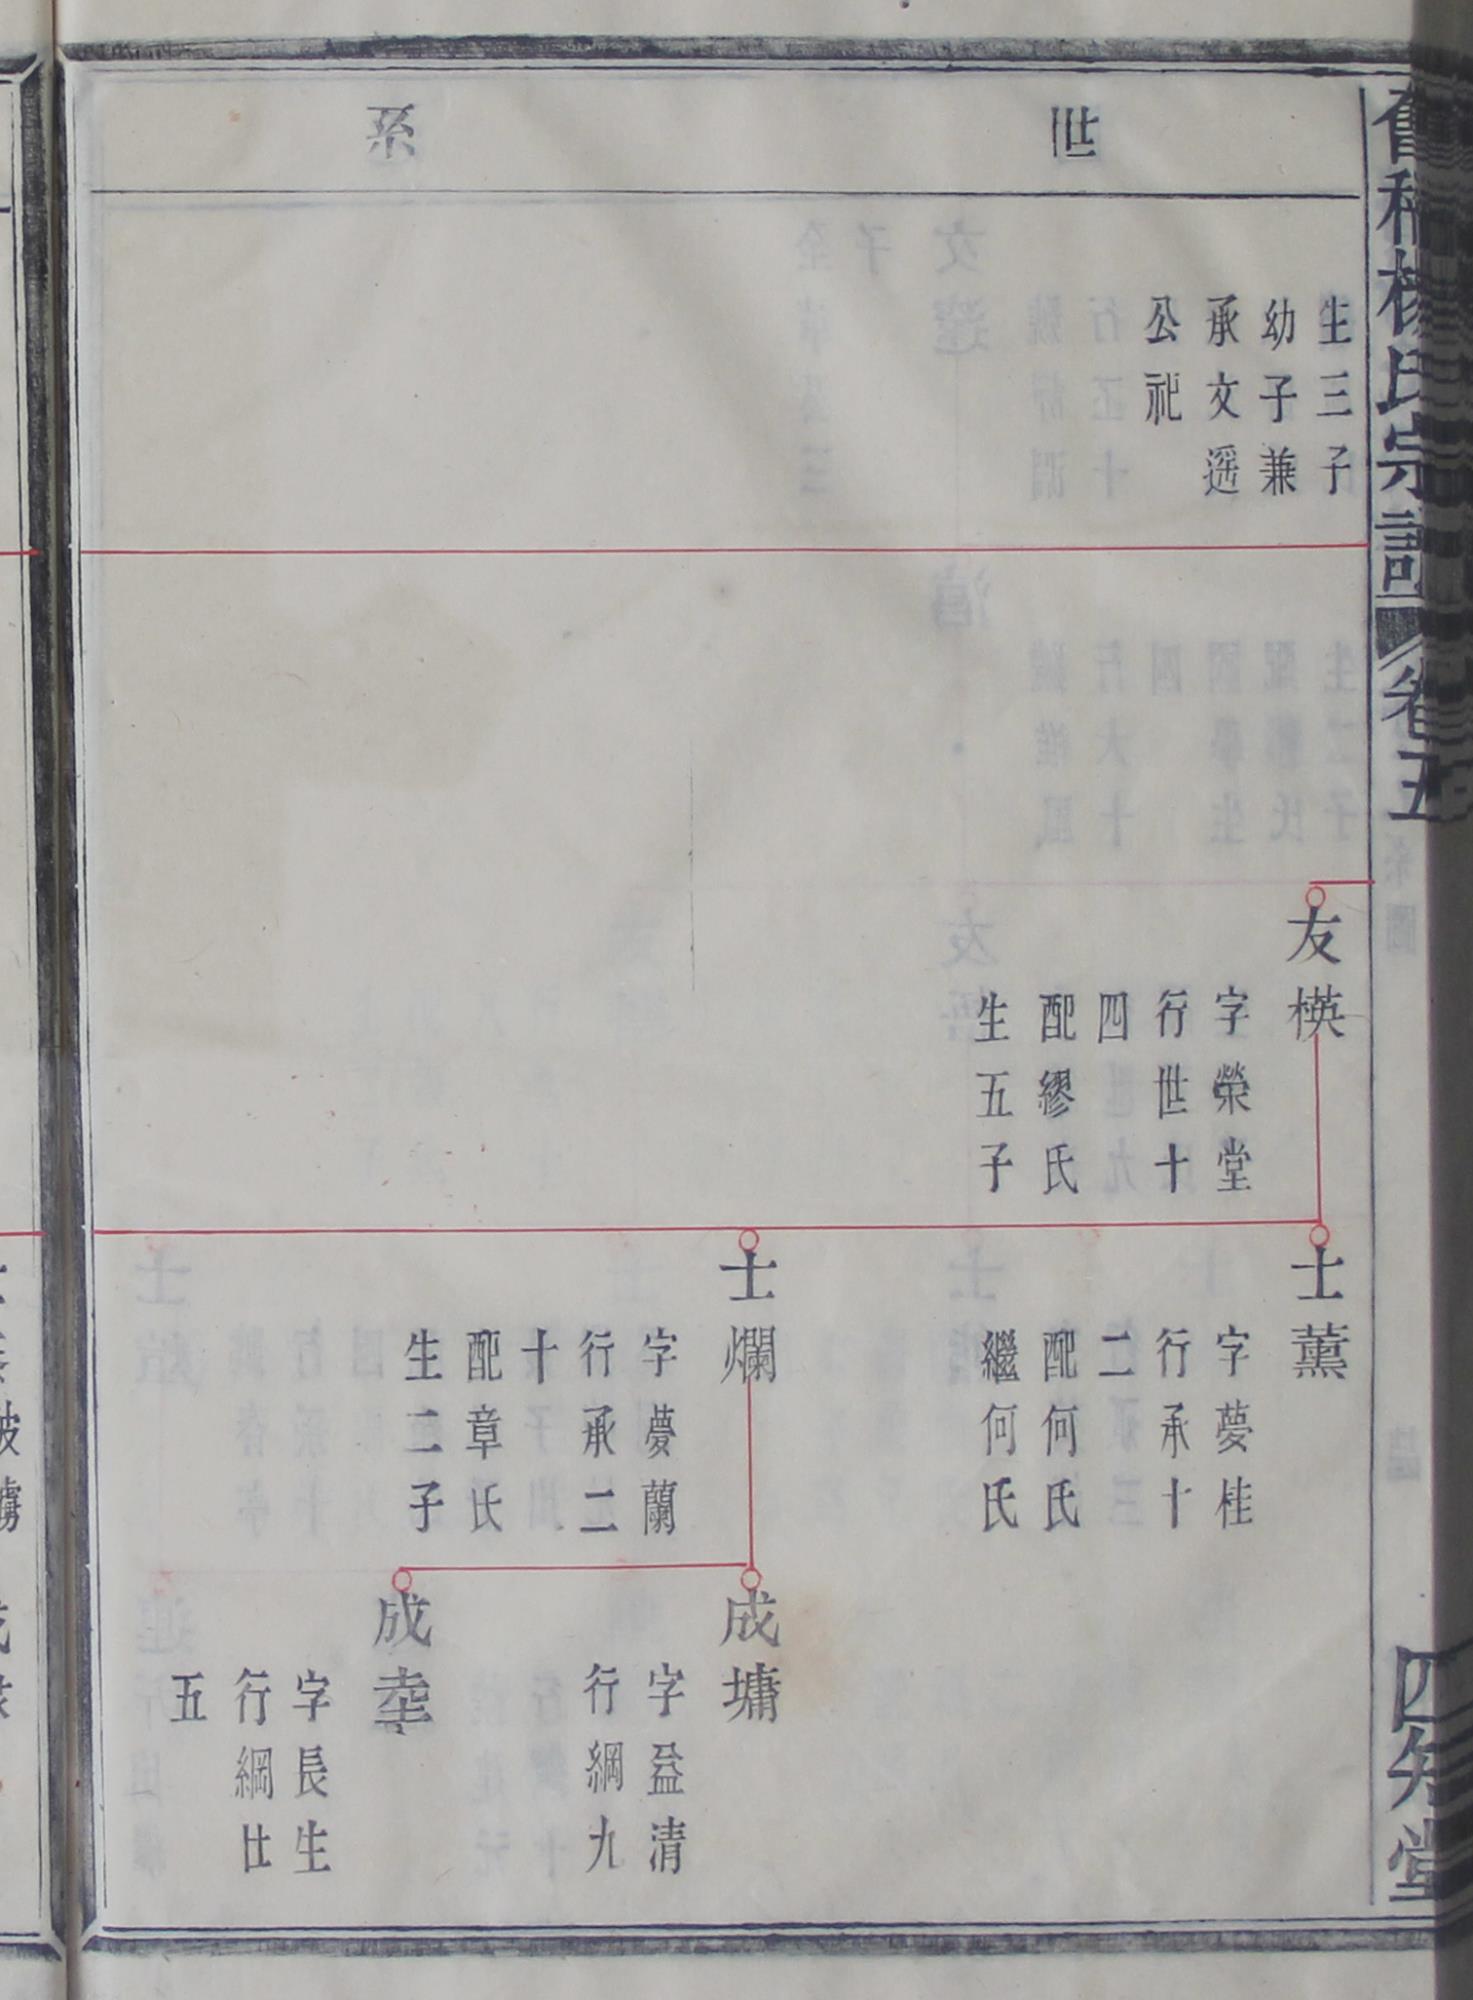 楊氏宗譜
卷五
四知堂
世系
生三子
幼子兼
承文遥
公祀
友楧
字榮堂
行世十
四
配繆氏
生五子
士薰
字夢桂
行承十
二
配何氏
繼何氏
士爛
字夢蘭
行承二
十
配章氏
生二子
成墉
字益清
行綱九
成
字長生
行綱廿
五